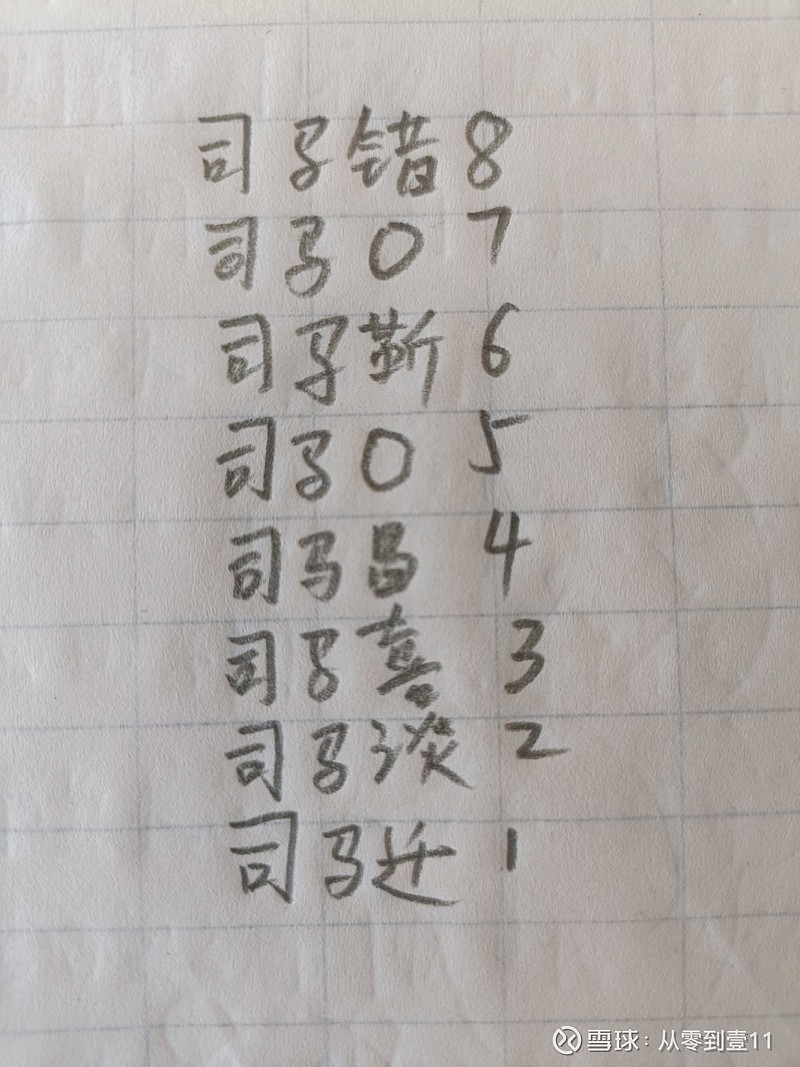 司马错8
司马0 7
司马靳6
司马0 5
司马昌 4
司马喜 3
司马谈 2
司马迁 1
雪球：从零到壹11